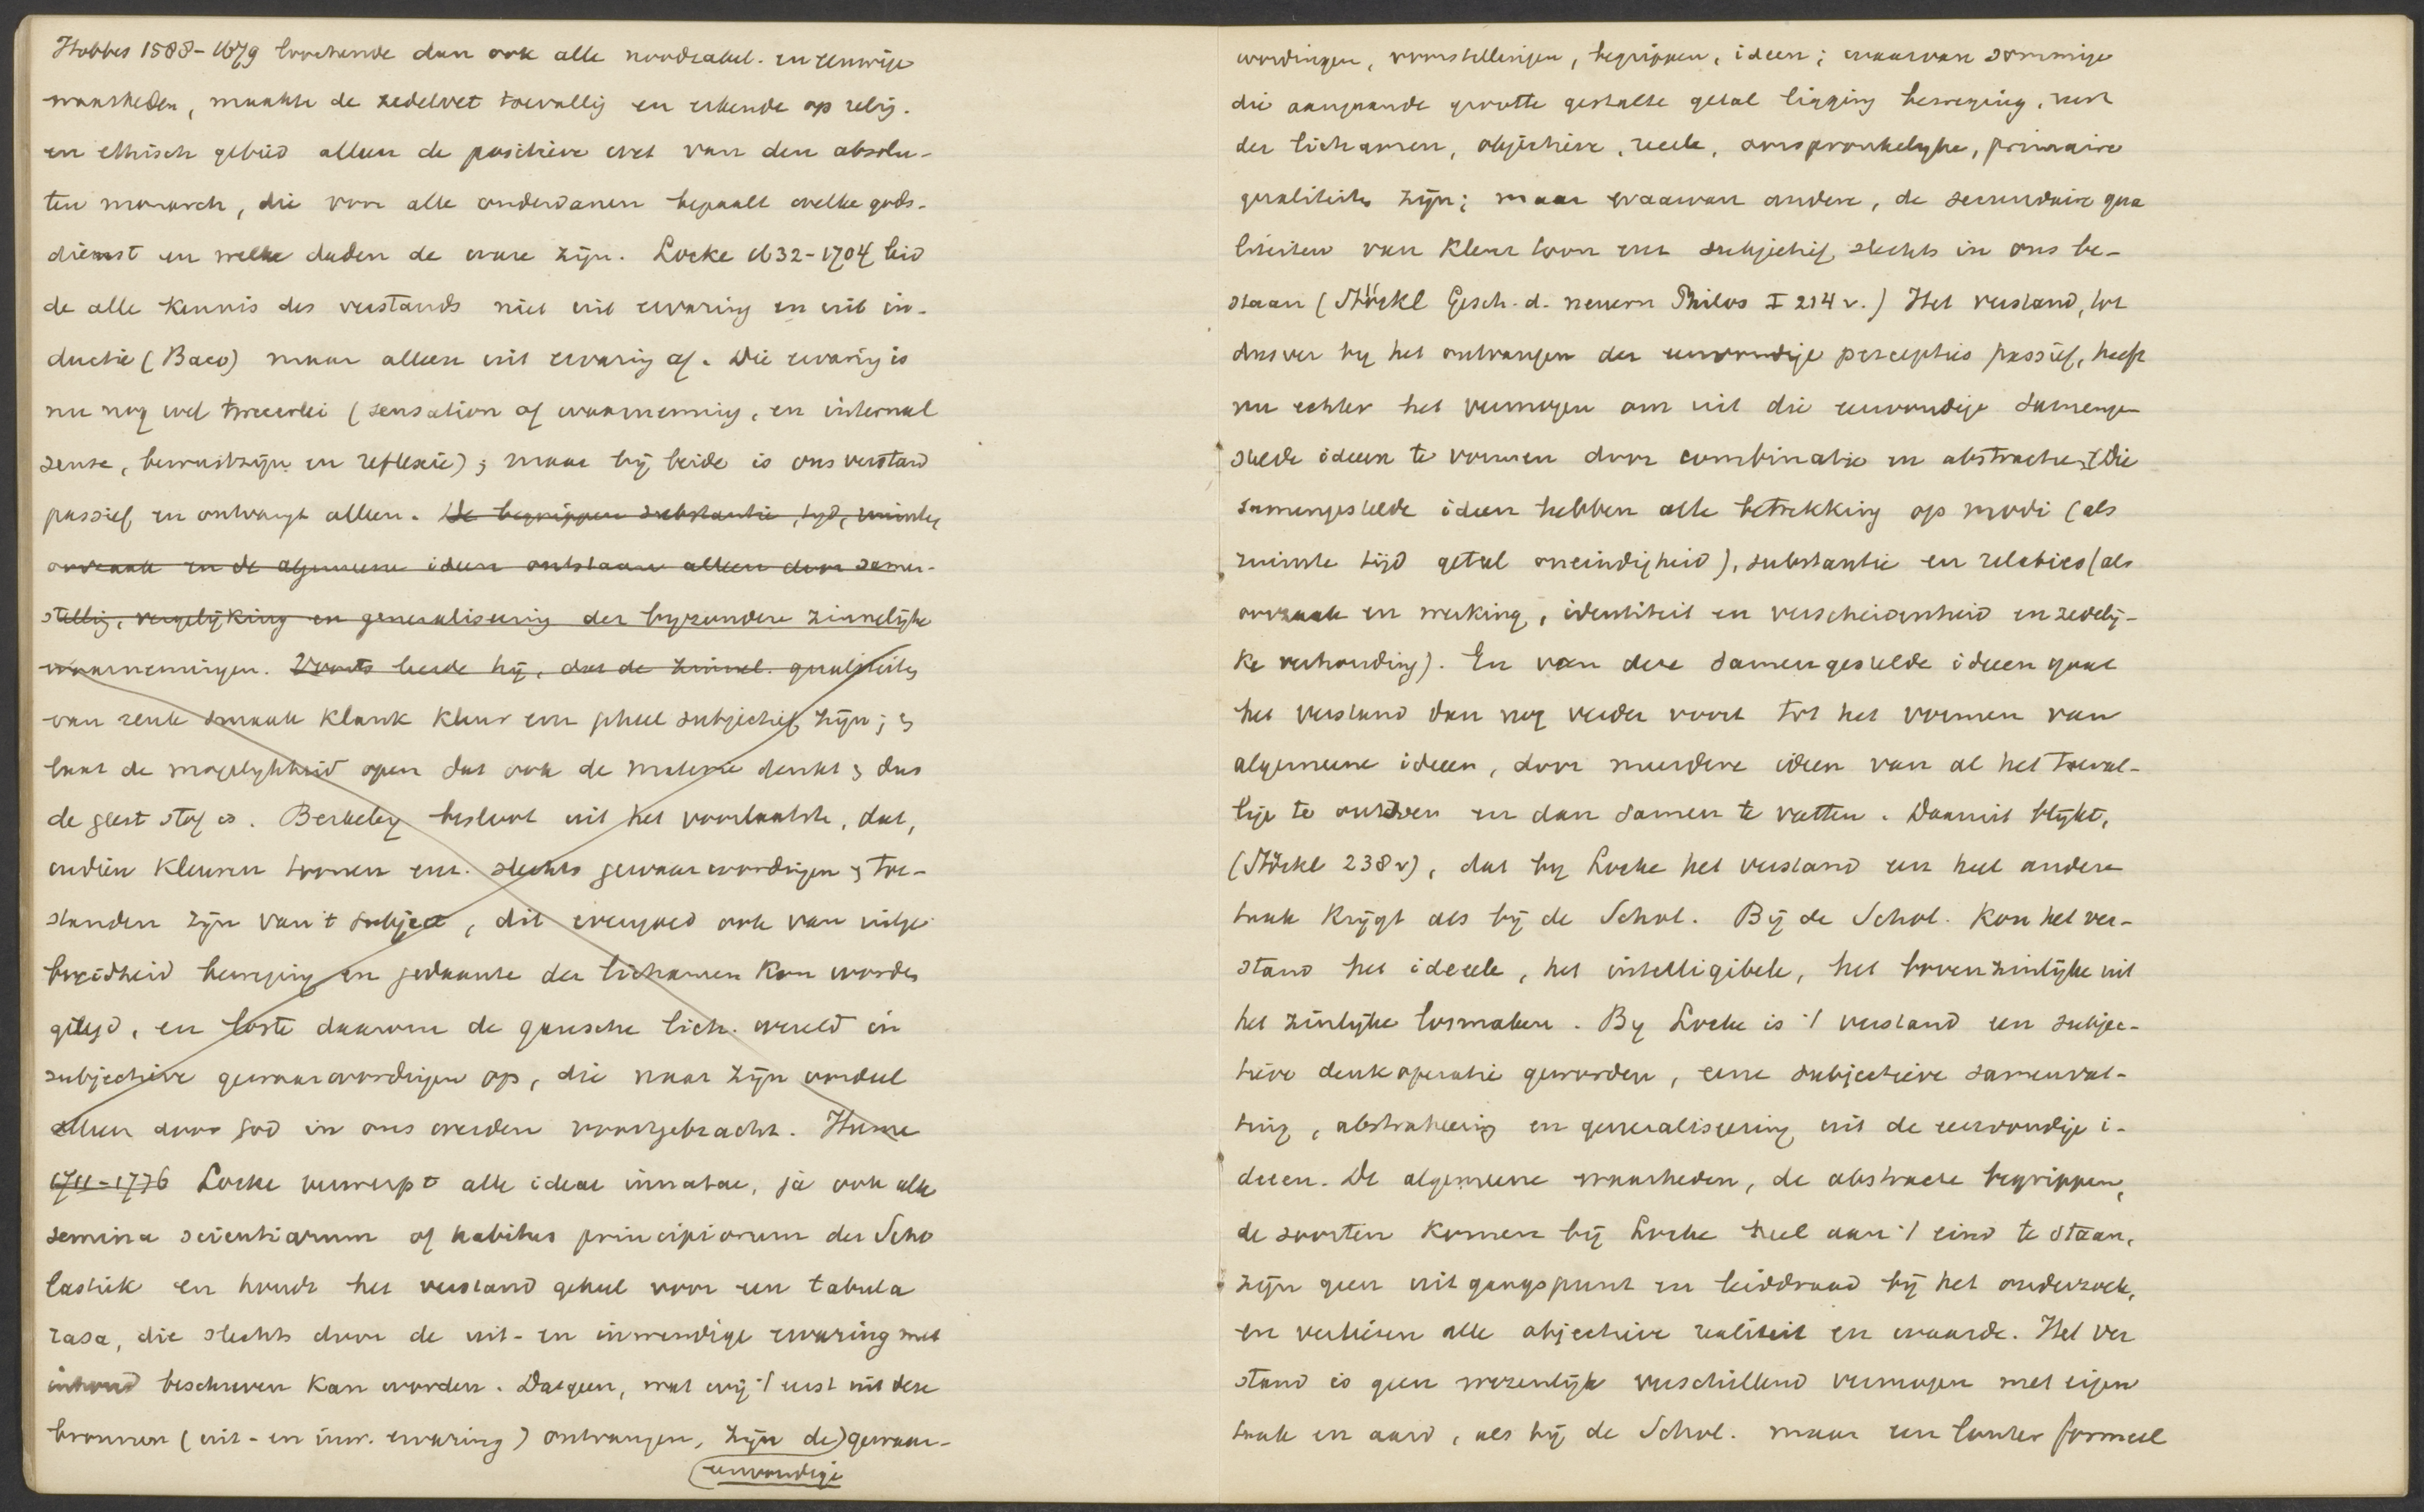 Hobbes 1588-1679 loochende dan ook alle noodzakel. en eeuwige
waarheden, maakte de zedelwet toevallig en erkende op relig.
en ethisch gebied alleen de positieve wet van den absolu-
ten monarch, die voor alle onderdanen bepaalt welke gods-
dienst en welke daden de ware zijn. Locke 1632-1704 leid
de alle kennis des verstands niet uit ervaring en uit in-
ductie (Baco) maar alleen uit ervaring af. Die ervaring is
nu nog wel tweeerlei (sensation of waarneming, en internal
sense, bewustzijn en reflexie); maar bij beide is ons verstand
passief en ontvangt alleen. De begrippen substantie, tyd, ruimte,
oorzaak en de algemeene ideen ontstaan alleen door samen-
stellig, vergelijking en generalisering der byzondere zinnelijke
waarnemingen. Voorts leerde hij, dat de zinnel. qualiteiten
van reuk smaak klank kleur enz geheel subjectief zijn; en
laat de mogelykheid open dat ook de materie denkt en dus
de geest stof is. Berkeley besloot uit het voorlaatste, dat,
indien kleuren toonen enz. slechts gewaarwordingen en toe-
standen zijn van 't subject, dit evengoed ook van uitge
breidheid beweging en gedaante der lichamen kon worden
gezegd, en loste daarom de gansche lich. wereld in
subjectieve gewaarwordingen op, die naar zijn oordeel
alleen door God in ons werden voortgebracht. Hume
1711-1776 Locke verwerpt alle ideae innatae, ja ook alle
semina scientiarum of habitus principiorum der Scho
lastiek en houdt het verstand geheel voor een tabula
rasa, die slechts door de uit- en inwendige ervaring met
inhoud beschreven kan worden. Datgeen, wat wij 't eerst uit deze
bronnen (uit- en inw. ervaring) ontvangen, zijn de) gewaar-
(eenvoudige
wordingen, voorstellingen, begrippen, ideen; waarvan sommige
die aangaande grootte gestalte getal ligging beweging, rust
der lichamen, objectieve, reele, oorspronkelyke, primaire
qualiteiten zijn; maar waarvan andere, de secundaire qua
liteiten van kleur toon enz subjectief, slechts in ons be-
staan (Stöckl Gesch. d. neuern Philos I 214 v.) Het verstand, tot
dusver by het ontvangen der eenvoudige percepties passief, heeft
nu echter het vermogen om uit die eenvoudige samenge
stelde ideen te vormen door combinatie en abstractie. Die
samengestelde ideen hebben alle betrekking op modi (als
ruimte tijd getal oneindigheid), substantie en relaties (als
oorzaak en werking, identiteit en verscheidenheid en zedelij-
ke verhouding). En van deze samengestelde ideeen gaat
het verstand dan nog verder voort tot het vormen van
algemeene ideeen, door meerdere ideen van al het toeval-
lige te ontdoen en dan samen te vatten. Daaruit blijkt,
(Stöckl 238 v), dat by Locke het verstand een heel andere
taak krijgt als bij de Schol. Bij de Schol. kon het ver-
stand het ideeele, het intelligibele, het bovenzinlijke uit
het zinlijke losmaken. By Locke is 't verstand een subjec-
tieve denkoperatie geworden, eene subjectieve samenvat-
ting, abstraheering en generaliseering uit de eenvoudige i-
deeen. De algemeene waarheden, de abstracte begrippen,
de soorten komen bij Locke heel aan 't eind te staan,
zijn geen uitgangspunt en leiddraad bij het onderzoek,
en verliezen alle objectieve realiteit en waarde. Het ver
stand is geen wezenlijk verschillend vermogen met eigen
taak en aard, als bij de Schol. maar een louter formeel